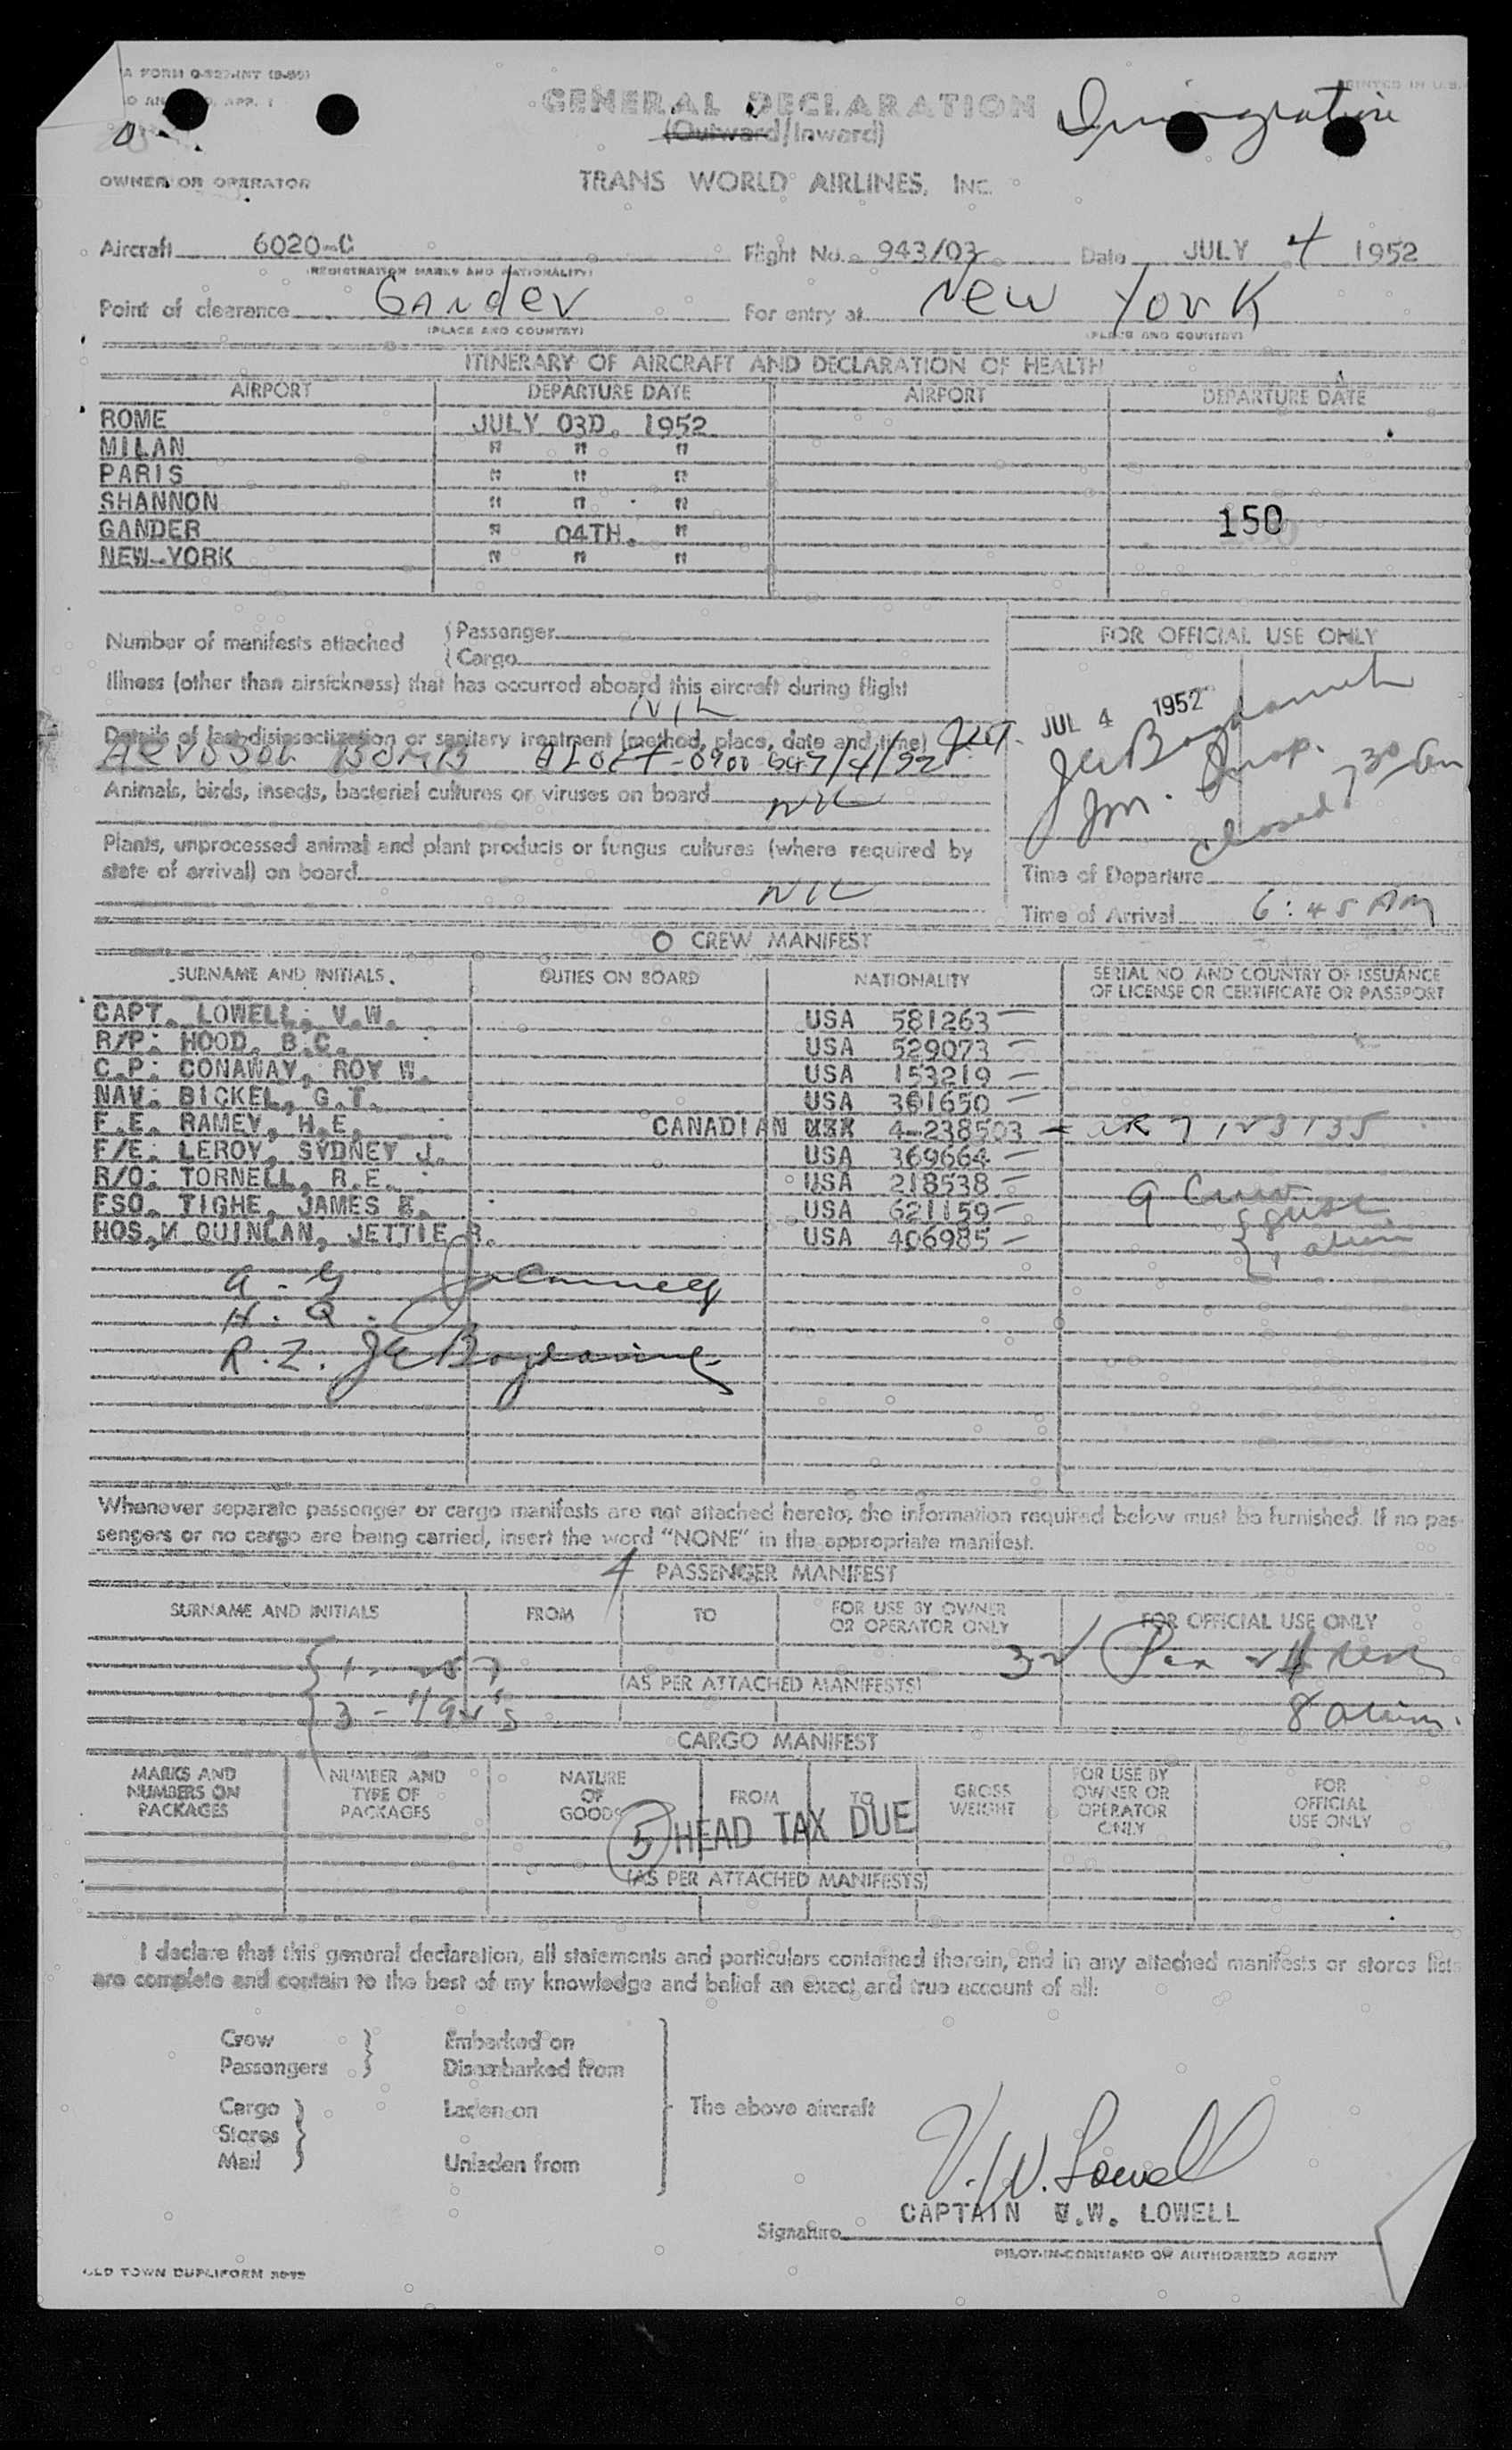 A FORM O-327-INT
GENERAL DECLARATION
Immigration
(Outward/Inward)
OWNER OR OPERATOR
TRANS WORLD AIRLINES, INC.
Aircraft 6020-C Flight No. 943/03 Date JULY 4 1952
(REGISTRATION MARKS AND NATIONALITY)
Point of clearance Gander For entry at New York
(PLACE AND COUNTRY) (PLACE AND COUNTRY)
ITINERARY OF AIRCRAFT AND DECLARATION OF HEALTH
AIRPORT DEPARTURE DATE AIRPORT DEPARTURE DATE
ROME JULY 03D. 1952
MILAN " " "
PARIS " " "
SHANNON " " "
GANDER " 04TH. "
150
NEW-YORK " " "
Number of manifests attached { Passenger
{ Cargo
FOR OFFICIAL USE ONLY
Illness (other than airsickness) that has occurred aboard this aircraft during flight
NIL
JUL 4 1952
Details of last disinsectization or sanitary treatment (method, place, date and time)
Animals, birds, insects, bacterial cultures or viruses on board NIL
Plants, unprocessed animal and plant products or fungus cultures (where required by
state of arrival) on board NIL
closed 730 am
Time of Departure
Time of Arrival 6:45 AM
O CREW MANIFEST
SURNAME AND INITIALS. DUTIES ON BOARD NATIONALITY SERIAL NO. AND COUNTRY OF ISSUANCE
OF LICENSE OR CERTIFICATE OR PASSPORT
CAPT. LOWELL, V.W. USA 581263
R/P: HOOD, B.C. USA 529073
C.P: CONAWAY, ROY W. USA 153219
NAV. BICKEL, G.T. USA 361650
F.E. RAMEY, H.E. CANADIAN 4-238503
F/E. LEROY, SYDNEY J. USA 369664
R/O: TORNELL, R.E. USA 218538
FSO. TIGHE, JAMES E. USA 621159
HOS, QUINLAN, JETTIE R. USA 406985
9 Crew
A.G
H.Q.
R.Z.
Whenever separate passenger or cargo manifests are not attached hereto, the information required below must be furnished. If no pas-
sengers or no cargo are being carried, insert the word "NONE" in the appropriate manifest.
4 PASSENGER MANIFEST
SURNAME AND INITIALS FROM TO FOR USE BY OWNER
OR OPERATOR ONLY FOR OFFICIAL USE ONLY
(AS PER ATTACHED MANIFESTS)
8 alien.
CARGO MANIFEST
MARKS AND
NUMBERS ON
PACKAGES NUMBER AND
TYPE OF
PACKAGES NATURE
OF
GOODS FROM TO GROSS
WEIGHT FOR USE BY
OWNER OR
OPERATOR
ONLY FOR
OFFICIAL
USE ONLY
5 HEAD TAX DUE
(AS PER ATTACHED MANIFESTS)
I declare that this general declaration, all statements and particulars contained therein, and in any attached manifests or stores lists
are complete and contain to the best of my knowledge and belief an exact and true account of all:
Crew
Passengers
Embarked on
Disembarked from
Cargo
Stores
Mail
Laden on
Unladen from
The above aircraft
V.W. Lowell
CAPTAIN V.W. LOWELL
Signature
PILOT-IN-COMMAND OR AUTHORIZED AGENT
OLD TOWN DUPLIFORM